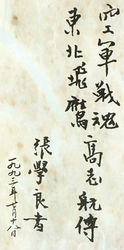 空軍戰魂
東北飛鷹
高志航傳
張學良書
一九九二年十月十六日